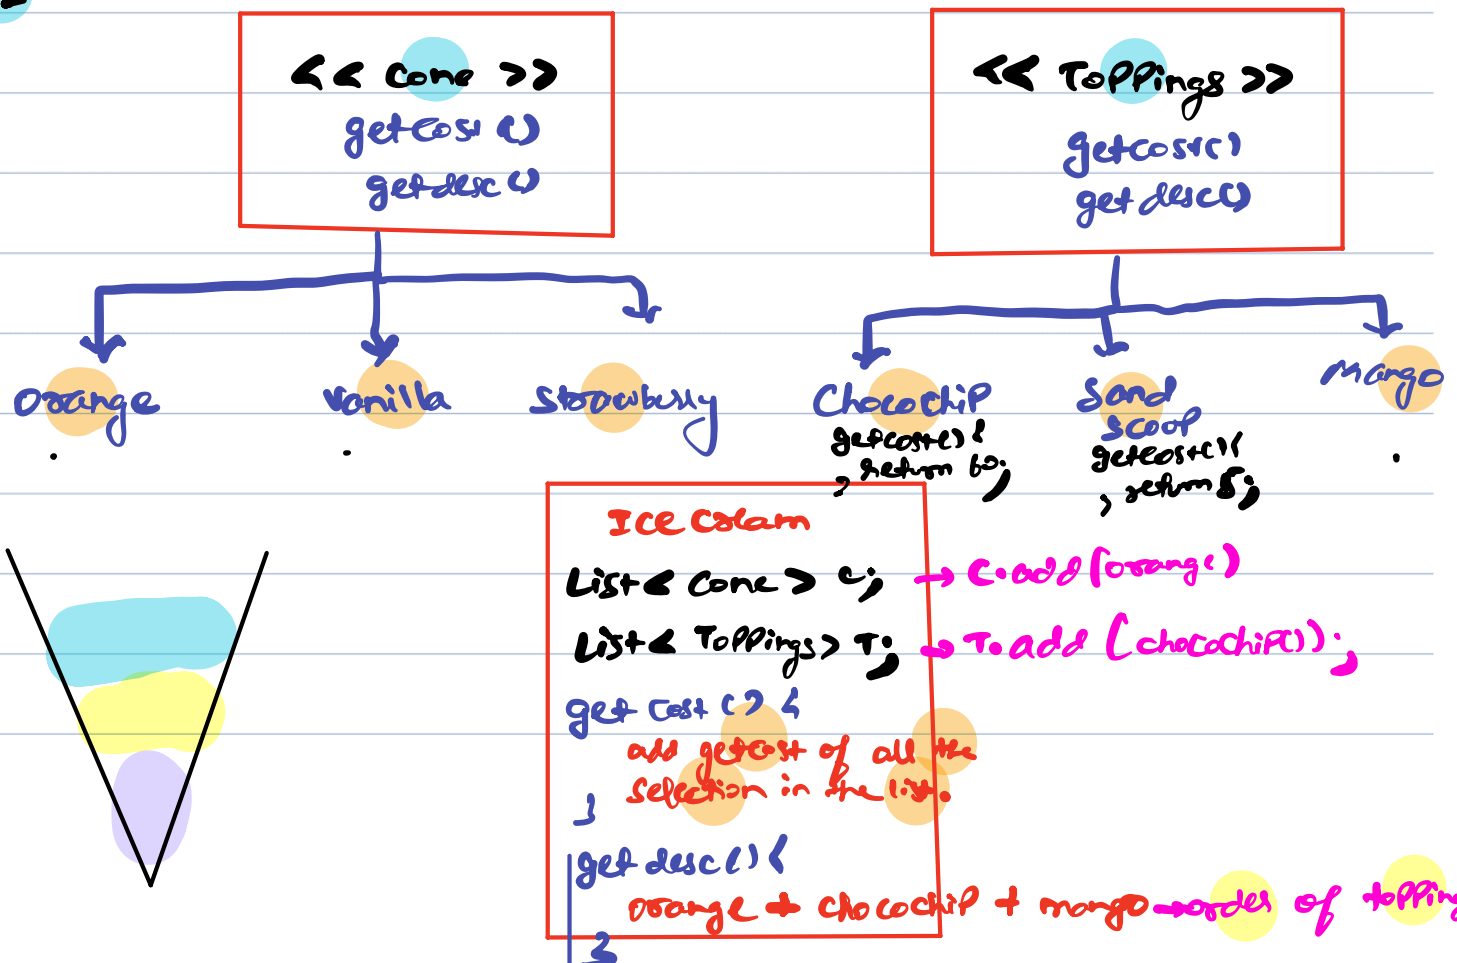 << Cone >>
getcost ()
getdesc ()
<< Toppings >>
getcost()
getdesc()
Orange
Vanilla
Strawberry
Chocochip
getcost() {
return 60;
}
Sand
scoop
getcost() {
return 5;
}
Mango
Ice Cream
List < Cone > c;
→ C.add(orange)
List < Toppings > T;
→ T.add (chocochip());
get cost () {
add getcost of all the
selection in the list.
}
get desc () {
orange + chocochip + mango → order of topping
}